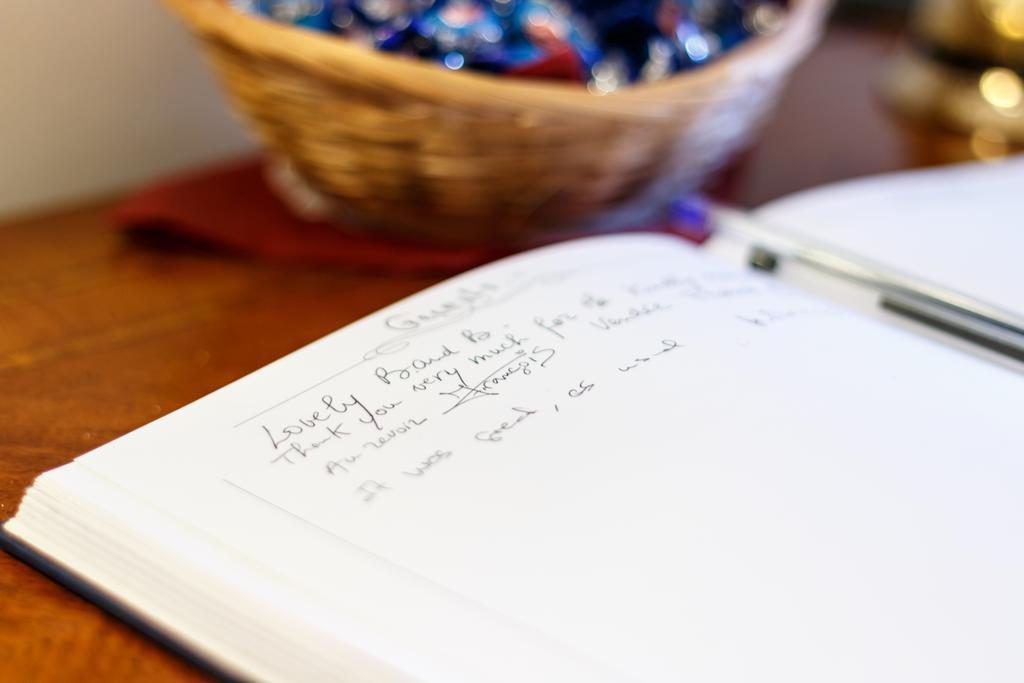 Guests
Lovely B and B.
Thank you very much for
Au revoir François Vendée
It was great, as usual